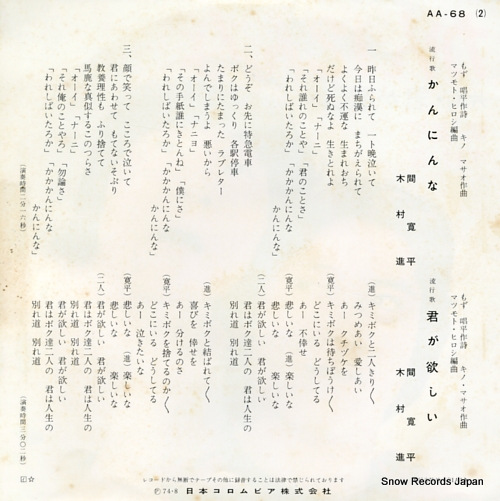 AA-68 (2)
流行歌
かんにんな
もず 唱平作詩
キノ・マサオ作曲
マツモト・ヒロシ編曲
間 寛平
木村 進
一、昨日ふられて 一ト晩泣いて
今日は痴漢に まちがえられて
よくよく不運な 生まれおち
だけど死ぬなよ 生きとれよ
「オーイ」「ナーニ」
「それ誰れのことや」「君のことさ」
「われしばいたろか」「かかかんにんな」
かんにんな」
二、どうぞ お先に特急電車
ボクはゆっくり 各駅停車
たまりにたまった ラブレター
よんでしまうよ 悪いから
「オーイ」「ナニヨ」
「その手紙誰にきとんね」「僕にさ」
「われしばいたろか」「かかかんにんな」
かんにんな」
三、顔で笑って こころで泣いて
君にあわせて もてないそぶり
教養理性も ふり捨てて
馬鹿な真似するこのつらさ
「オーイ」「ナーニ」
「それ俺のことやろ」「勿論さ」
「われしばいたろか」「かかかんにんな」
かんにんな」
(演奏時間二分一六秒)
流行歌
君が欲しい
もず 唱平作詩
キノ・マサオ作曲
マツモト・ヒロシ編曲
間 寛平
木村 進
(進)キミボクと二人きり〱
みつめあい 愛しあい
あー クチヅケを
(寛平)キミボクは待ちぼうけ〱
どこにいる どうしてる
あー 不倖せ
(寛平)悲しいな (進)楽しいな
悲しいな 楽しいな
(二人)君が欲しい 君が欲しい
君はボク達二人の 君は人生の
別れ道 別れ道
(進)キミボクと結ばれて〱
喜びを 倖せを
あー 分けるのさ
(寛平)キミボクを捨てるのか〱
どこにいる どうしてる
あー 泣きたいな
(寛平)悲しいな (進)楽しいな
悲しいな 楽しいな
(二人)君が欲しい 君が欲しい
君はボク達二人の 君は人生の
別れ道 別れ道
君が欲しい 君が欲しい
君はボク達二人の 君は人生の
別れ道 別れ道
(演奏時間三分〇二秒)
レコードから無断でテープその他に録音することは法律で禁じられております
Ⓟ74・8 日本コロムビア株式会社
Snow Records Japan